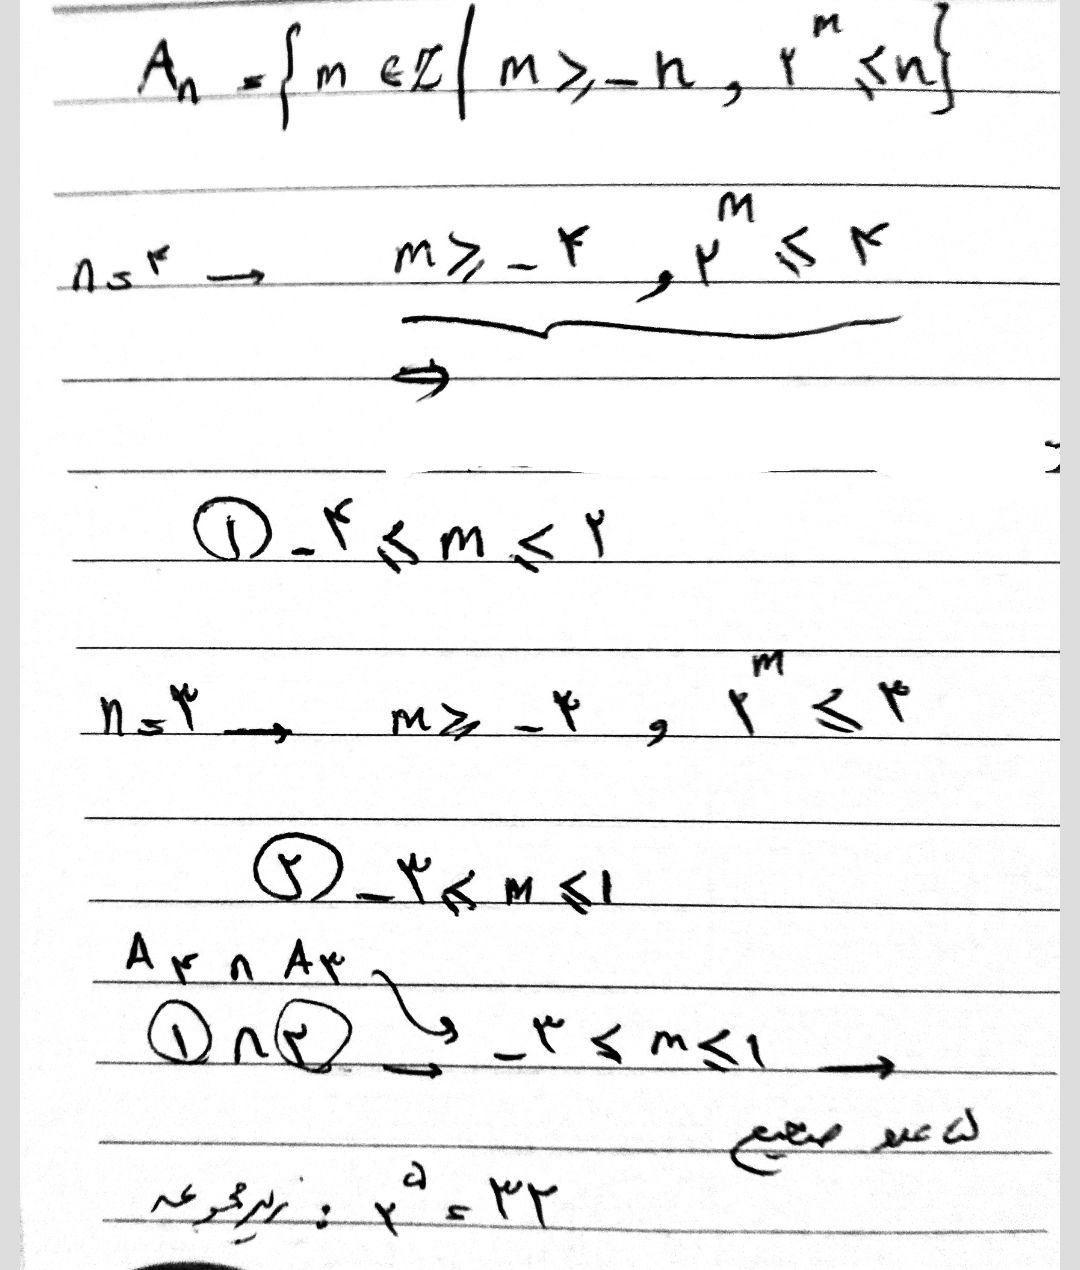 Aₙ = { m ∈ ℤ | m ≥ -n , ۲^m ≤ n }
n = ۴ → m ≥ -۴ , ۲^m ≤ ۴
⇒
① -۴ ≤ m ≤ ۲
n = ۳ → m ≥ -۳ , ۲^m ≤ ۳
② -۳ ≤ m ≤ ۱
A۴ ∩ A۳
① ∩ ② → -۳ ≤ m ≤ ۱ →
۵ عدد صحیح
زیرمجموعه : ۲^۵ = ۳۲